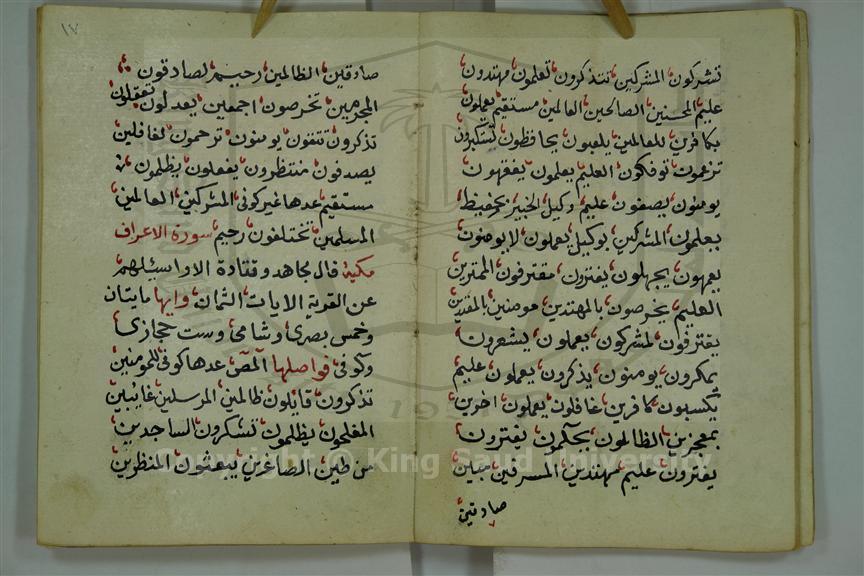 تشركون المشركين تتذكرون تعلمون مهتدون
عليم المحسنين الصالحين العالمين مستقيم يعملون
بكافرين للعالمين يلعبون يحافظون تستكبرون
تزعمون توفكون العليم يعلمون يفقهون
يومنون يصفون عليم وكيل الخبير بحفيظ
يعلمون المشركين بوكيل يعملون لا يومنون
يعمهون يجهلون يفترون مقترفون الممترين
العليم يخرصون بالمهتدين مومنين بالمعتدين
يقترفون لمشركون يعملون يشعرون
يمكرون يومنون يذكرون يعملون عليم
يكسبون كافرين غافلون يعملون اخرين
بمعجزين الظالمون يحكمون يفترون
يفترون عليم مهتدين المسرفين مبين
صادقين
١٧
صادقين الظالمين رحيم لصادقون
المجرمين تخرصون اجمعين يعدلون تعقلون
تذكرون تتقون يومنون ترحمون لغافلين
يصدفون منتظرون يفعلون يظلمون
مستقيم عدها غير كوفي المشركين العالمين
المسلمين تختلفون رحيم سورة الاعراف
مكية قال مجاهد وقتادة الا واسئلهم
عن القرية الايات الثمان وايها مايتان
وخمس بصري وشامي وست حجازي
وكوفي فواصلها المص عدها كوفي للمومنين
تذكرون قايلون ظالمين المرسلين غائبين
المفلحون يظلمون تشكرون الساجدين
من طين الصاغرين يبعثون المنظرين
Copyright © King Saud University